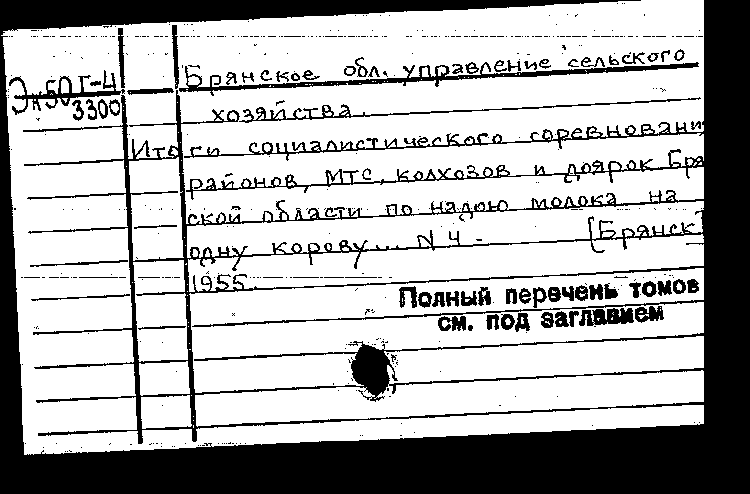 Эк50Г-4
3300
Брянское обл. управление сельского
хозяйства.
Итоги социалистического соревнования
районов, МТС, колхозов и доярок Бря
ской области по надою молока на
одну корову... N 4 - [Брянск]
1955.
Полный перечень томов
см. под заглавием